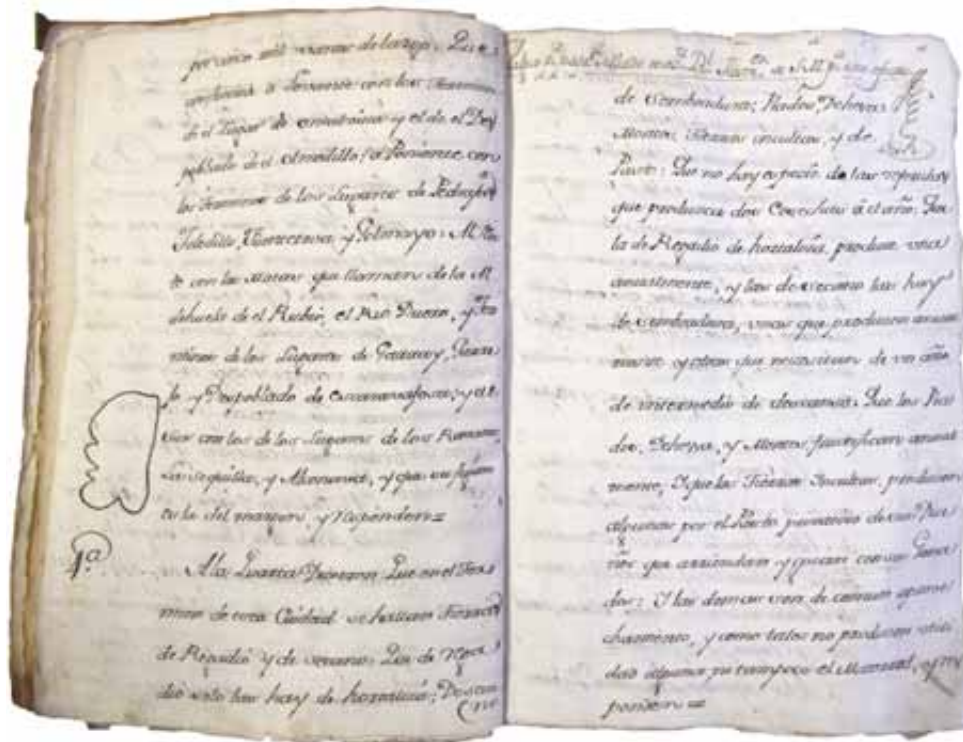 por unos mil varas de largo; Que
confronta a Levante con los terminos
de el Lugar de y el de el Des
poblado de el Almadillo; a Poniente con
los terminos de los Lugares de Pedrajas
Toledillo, y Golmayo; Al Nor
te con las Matas que llaman de la
dehuela de el Rubio, el Rio Duero, y ter
minos de los Lugares de Garray,
y Despoblado de y al
Sur con los de los Lugares de los Rabanos,
y que su figura
es la del margen y responden =
4ª
A la Quarta Dixeron Que en el Ter
mino de esta Ciudad se hallan Tierras
de Regadio y de secano: Que de Rega
dio solo las hay de hortaliza; De seca
no
de Sembradura; Prados, Dehesas
Montes; Tierras incultas, y de
Pasto: Que no hay especie de las referidas
que produzca dos Cosechas á el año: Que
la de Regadio de hortaliza, produce una
anualmente, y las de secano las hay
de Sembradura, unas que producen anual
mente y otras que necesitan de un año
de intermedio de descanso. Que los Pra
dos, Dehesas, y Montes fructifican anual
mente, Y que las Tierras Incultas, producen
algunas por el Pasto
que arriendan y con sus Gana
dos: Y las demas son de comun aprove
chamiento, y como tales no producen utili
dad alguna ni tampoco el Matorral, y res
ponden =